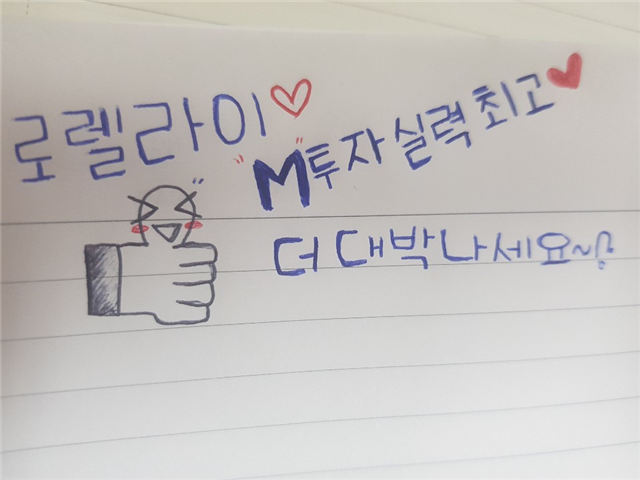 로렐라이♡
"M"투자 실력 최고♥
더 대박나세요~♪